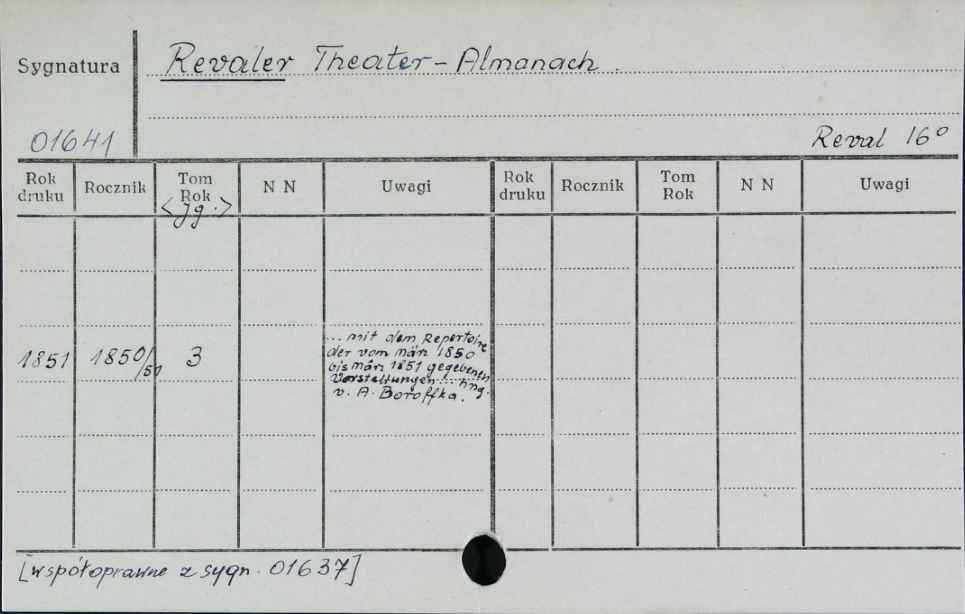 Sygnatura
Revaler Theater-Almanach.
01641
Reval 16°
Rok druku Rocznik Tom Rok N N Uwagi Rok druku Rocznik Tom Rok N N Uwagi
<Jg.>
1851 1850/51 3
... mit dem Repertoire
der vom März 1850
bis März 1851 gegebenen
Vorstellungen ... hng.
v. A. Boroffka.
[współoprawne z sygn. 01637]